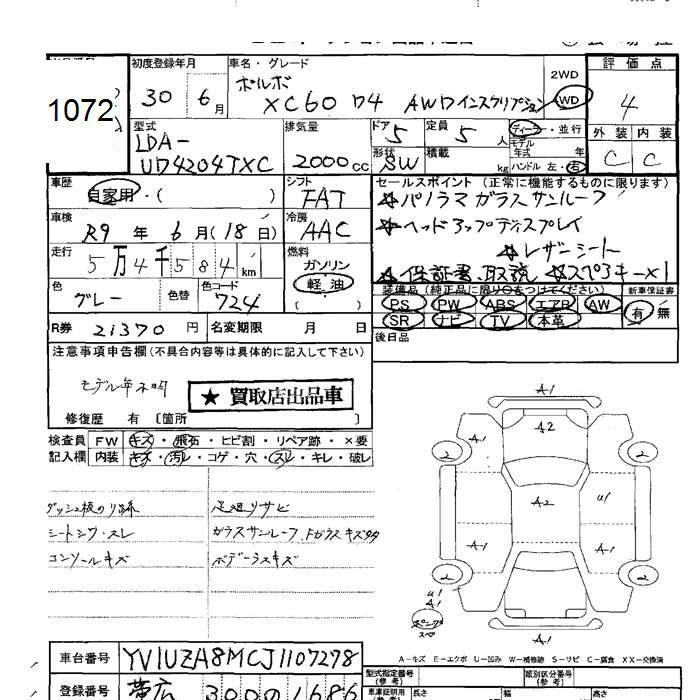 初度登録年月 車名・グレード 評価点
1072
30 6月
ボルボ
XC60 D4 AWDインスクリプション
2WD
4WD
4
型式 排気量 ドア 定員 ディーラー・並行 外装 内装
LDA-
UD4204TXC 2000cc
5 5人
モデル年式 年
形状 積載 ハンドル 左・右
SW kg
C C
車歴 シフト セールスポイント (正常に機能するものに限ります)
自家用・( ) FAT
☆パノラマガラスサンルーフ
車検 冷房
R9年 6月(18日) AAC
☆ヘッドアップディスプレイ
☆レザーシート
走行 燃料
5万4千584km ガソリン
軽油
( )
☆保証書、取説 ☆スペアキー×1
色 色替 色コード
グレー 724
装備品 (純正品に限り○をつけてください) 新車保証書
PS PW ABS エアB AW
SR ナビ TV 本革
有・無
R券 21370円 名変期限 月 日
後日品
注意事項申告欄(不具合内容等は具体的に記入して下さい)
モデル年不明
★ 買取店出品車
修復歴 有 〔箇所 〕
検査員 FW キズ・飛石・ヒビ割・リペア跡・×要
記入欄 内装 キズ・汚レ・コゲ・穴・スレ・キレ・破レ
ダッシュ板のり跡 足廻リサビ
シートシワ・スレ ガラスサンルーフ、Fガラスキズ多々
コンソールキズ ボデーラスキズ
A1
A1 A2
2 2
A2 U1
A1 A1
2 2
U1
A1
スペア
A1
A-キズ E-エクボ U-凹み W-補修跡 S-サビ C-腐食 XX-交換済
車台番号 YV1UZA8MCJ1107278
型式指定番号 類別区分番号
登録番号 帯広 300 の 1686
車庫証明用(参考) 長さ 幅 高さ